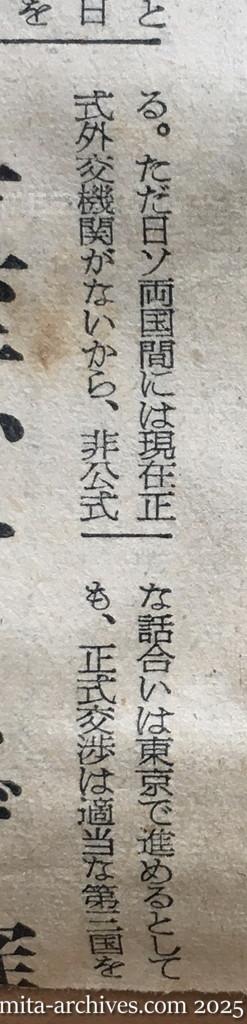 と
日
を
る。ただ日ソ両国間には現在正
式外交機関がないから、非公式
な話合いは東京で進めるとして
も、正式交渉は適当な第三国を
mita-archives.com 2025